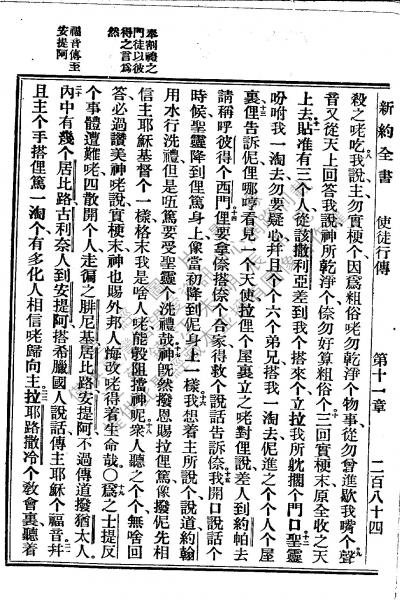 新約全書 使徒行傳 第十一章 二百八十四
殺之咾吃、我說主勿實梗个、因爲粗俗咾勿乾淨个物事、從勿曾進歇我嘴个、聲
音又從天上回答我說、神所乾淨个、倷勿好算粗俗个、三回實梗末、原全收之天
上去、貼准有三个人、從該撒利亞差到我个搭來个、立拉我所躭擱个門口、聖靈
吩咐我、一淘去勿要疑心、幷且个个六个弟兄、搭我一淘去、伲進之个个人个屋
裏、俚告訴伲、俚哪哼看見一个天使、拉俚个屋裏立之咾對俚說、差人到約帕去、
請稱呼彼得个西門、俚要拿倷搭倷个合家得救个說話告訴倷、我開口說話个
時候、聖靈降到俚篤身上、像當初降到伲身上一樣、我想着主所說个、說道、約翰
用水行洗禮、但是唔篤要受聖靈个洗禮哉、神旣然撥恩賜拉俚篤、像撥伲先相
信主耶穌基督个一樣、格末我是啥人咾、能彀阻擋神呢、衆人聽之个个、無啥回
答、必過讚美神咾說、實梗末、神也賜外邦人悔改咾得着生命哉。○爲之士提反
个事體遭難咾四散開个人、走徧之腓尼基居比路安提阿、不過傳道撥猶太人、
內中有幾个居比路古利奈人、到安提阿搭希臘國人說話、傳主耶穌个福音、幷
且主个手搭俚篤一淘、个有多化人相信咾歸向主、拉耶路撒冷个敎會裏聽着
奉割禮之
門徒以彼
得之言爲
然
福音傳至
安提阿